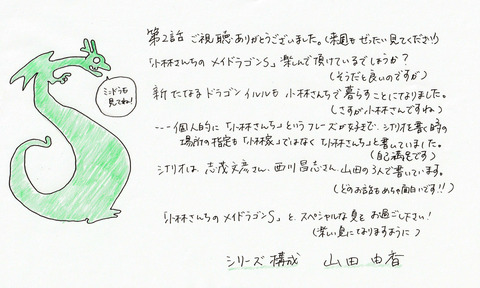 第2話 ご視聴ありがとうございました。(来週もぜったい見てください!)
「小林さんちのメイドラゴンS」楽しんで頂けているでしょうか?
(そうだと良いのですが)
新たなるドラゴン イルルも 小林さんちで暮らすことになりました。
(さすが小林さんですね)
ミニドラも
見てね!
---個人的に「小林さんち」というフレーズが好きで、シナリオを書く時の
場所の指定も「小林家」ではなく「小林さんち」と書いていました。
(自己満足です)
シナリオは、志茂文彦さん、西川昌志さん、山田の3人で書いています。
(どのお話もめちゃ面白いです!!)
「小林さんちのメイドラゴンS」と、スペシャルな夏をお過ごし下さい!
(楽しい夏になりますように)
シリーズ構成 山田由香